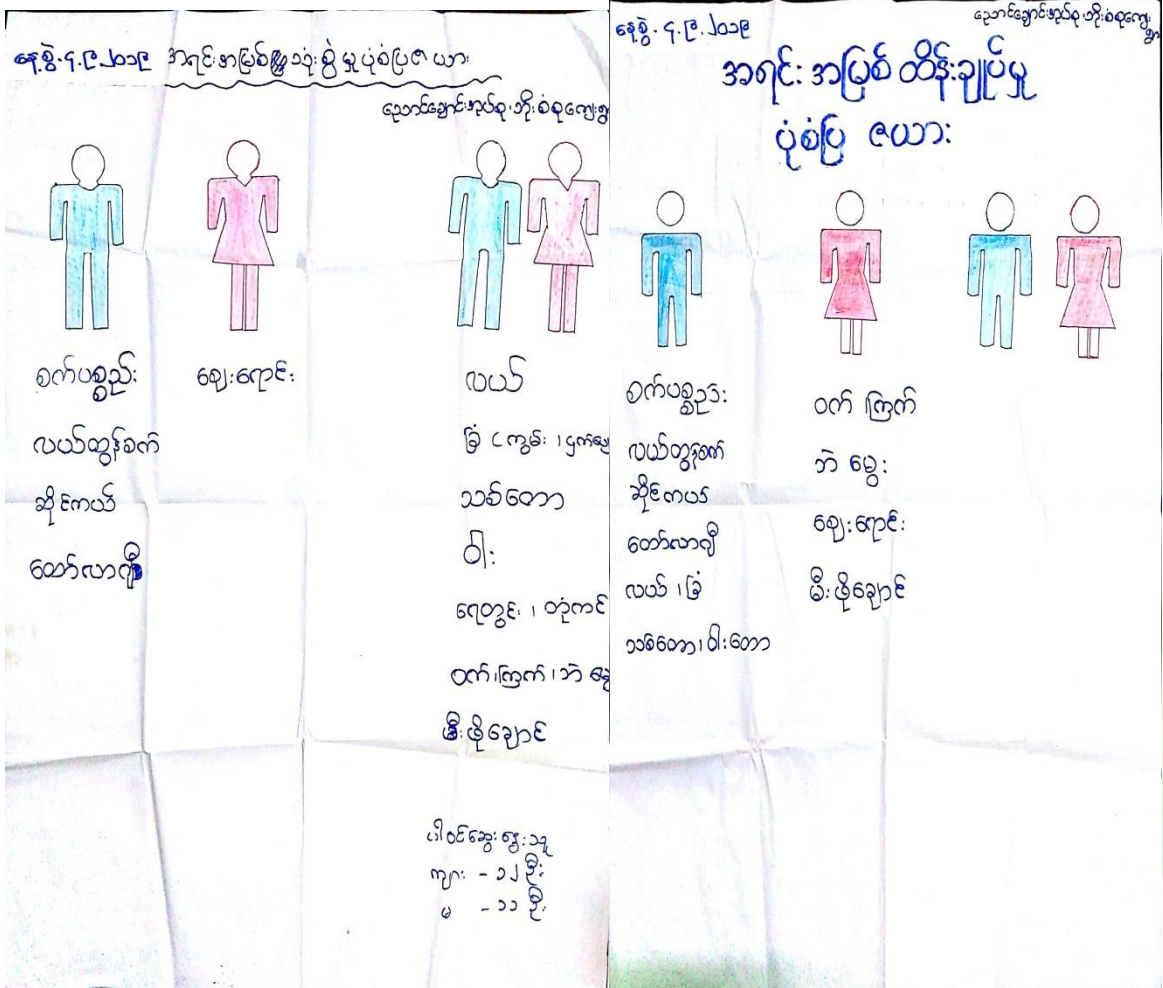 နေ့စွဲ.၄.၉.၂၀၁၉ အရင်းအမြစ် သုံးစွဲမှုပုံစံပြဇယား
ညောင်ချောင်းအုပ်စု၊ဘိုးစံစုကျေးရွာ
စက်ပစ္စည်း
လယ်ထွန်စက်
ဆိုင်ကယ်
ထော်လာဂျီ
ဈေးရောင်း
လယ်
ခြံ (ကွမ်း၊ငှက်ပျေ
သစ်တော
ဝါး
ရေတွင်း၊တုံကင်
ဝက်၊ကြက်၊ဘဲ မွေ
မီးဖိုချောင်
ပါဝင်ဆွေးနွေးသူ
ကျား - ၁၂ ဦး
မ - ၁၁ ဦး
နေ့စွဲ.၄.၉.၂၀၁၉
ညောင်ချောင်းအုပ်စု၊ဘိုးစံစုကျေးရွာ
အရင်းအမြစ် ထိန်းချုပ်မှု
ပုံစံပြ ဇယား
စက်ပစ္စည်း
လယ်ထွန်စက်
ဆိုင်ကယ်
ထော်လာဂျီ
လယ်၊ခြံ
သစ်တော၊ဝါးတော
ဝက် ကြက်
ဘဲ မွေး
ဈေးရောင်း
မီးဖိုချောင်